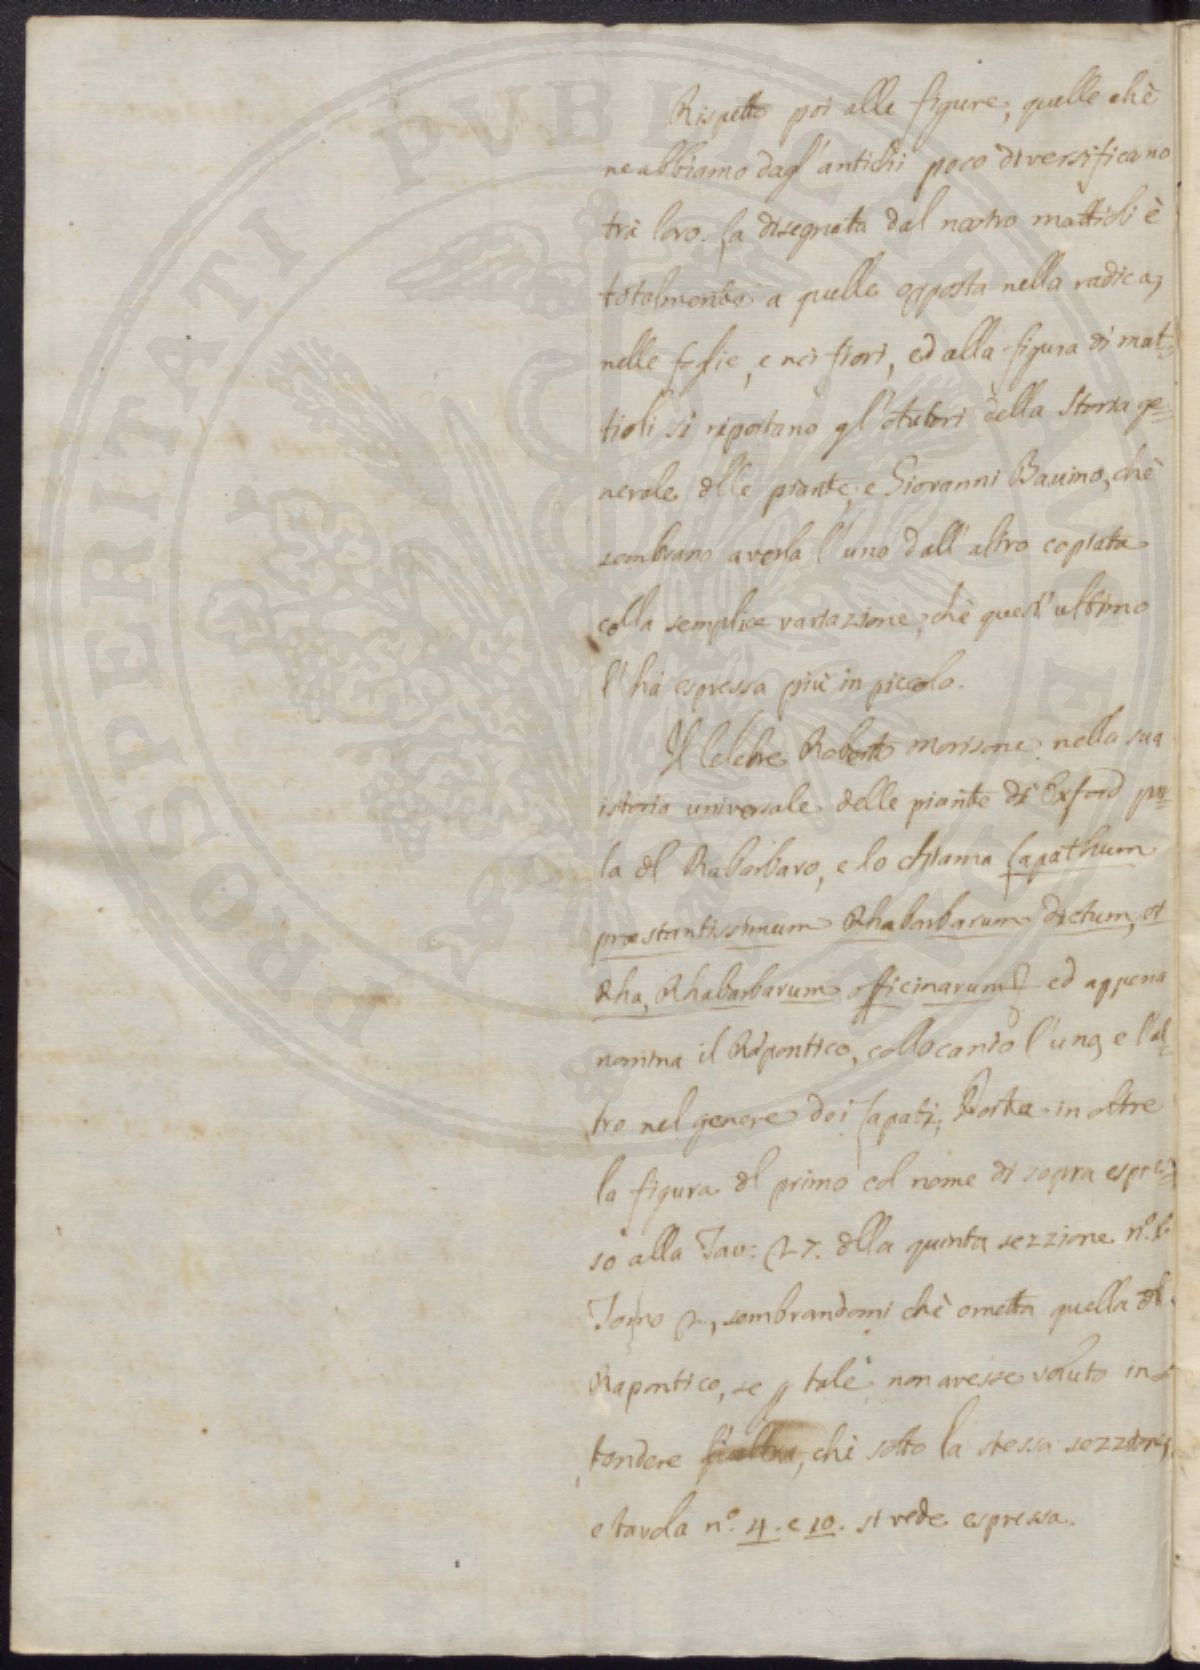 Rispetto poi alle figure, quelle chè
ne abbiamo dagl'antichi poco diversificano
trà loro. La disegnata dal nostro Mattioli è
totalmente a quelle opposta nella radica,
nelle foglie, e nei fiori, ed alla figura di Mat-
tioli si riportano gl'Autori della Storia ge=
nerale dlle piante, e Giovanni Bauino, chè
sembrano averla l'uno dall'altro copiata
colla semplice variazione, chè quest'ultimo
l'hà espressa più in piccolo.
Il Celebre Roberto Morisone nella sua
istoria universale delle piante di Oxford par=
la dl Rabarbaro, e lo chiama Lapathum
præstantissimum Rhabarbarum dictum, et
Rha, Rhabarbarum officinarum ed appena
nomina il Rapontico, collocando l'uno, e l'al=
tro nel genere dei Lapati; Porta in oltre
la figura dl primo col nome di sopra espres=
so alla Tav: 27. dlla quinta sezzione n.º 1.
Tomo 2, sembrandomi chè ometta quella dl
Rapontico, se p tale non avesse voluto in=
tendere l'altra, chè sotto la stessa sezzione,
e tavola n.º 4. e 10. si vede espressa.
PROSPERITATI PUBLICAE